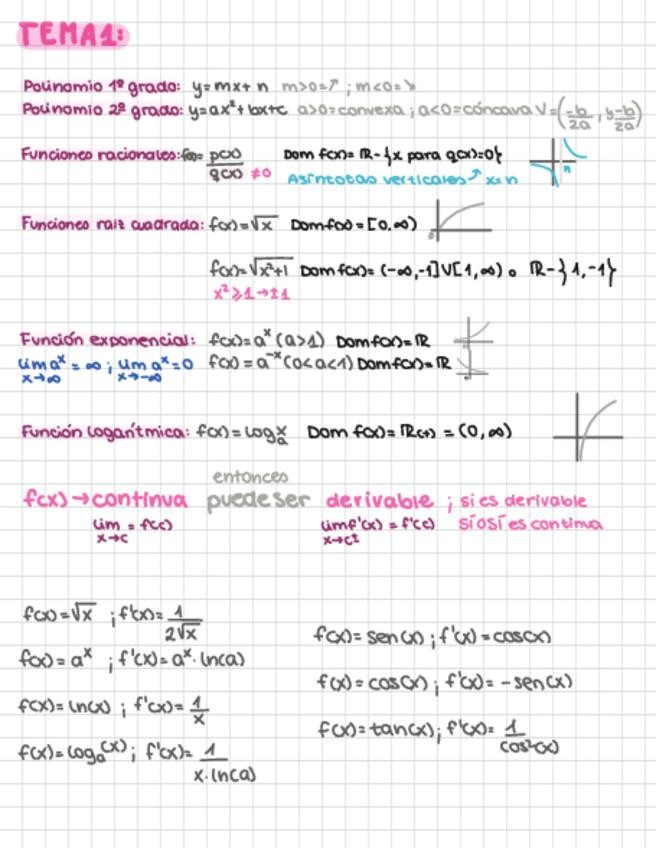 TEMA1:
Polinomio 1º grado: y=mx+n m>0=↗ ; m<0=↘
Polinomio 2º grado: y=ax²+bx+c a>0=convexa ; a<0=cóncava V=(-b/2a, y-b/2a)
Funciones racionales: f(x)= p(x)/q(x) ≠0 Dom f(x)= R-{x para q(x)=0}
Asíntotas verticales ↗ x=n
n
Funciones raíz cuadrada: f(x)=√x Dom f(x)= [0,∞)
0
f(x)=√x²+1 Dom f(x)= (-∞,-1]V[1,∞) o R-}1,-1}
x²≥1→±1
Función exponencial: f(x)=aˣ (a>1) Dom f(x)=R
lim aˣ = ∞ ; lim aˣ=0 f(x)=a⁻ˣ (0<a<1) Dom f(x)=R
x→∞ x→-∞
Función logarítmica: f(x)=logₐx Dom f(x)=R(+) = (0,∞)
entonces
f(x)→continua puede ser derivable ; si es derivable
lim = f(c) lim f'(x) = f'(c) sí o sí es continua
x→c x→c±
f(x)=√x ; f'(x)= 1/2√x
f(x)=aˣ ; f'(x)=aˣ·ln(a)
f(x)=ln(x) ; f'(x)= 1/x
f(x)=logₐ(x) ; f'(x)= 1/x·ln(a)
f(x)=sen(x) ; f'(x)=cos(x)
f(x)=cos(x) ; f'(x)= -sen(x)
f(x)=tan(x) ; f'(x)= 1/cos²(x)